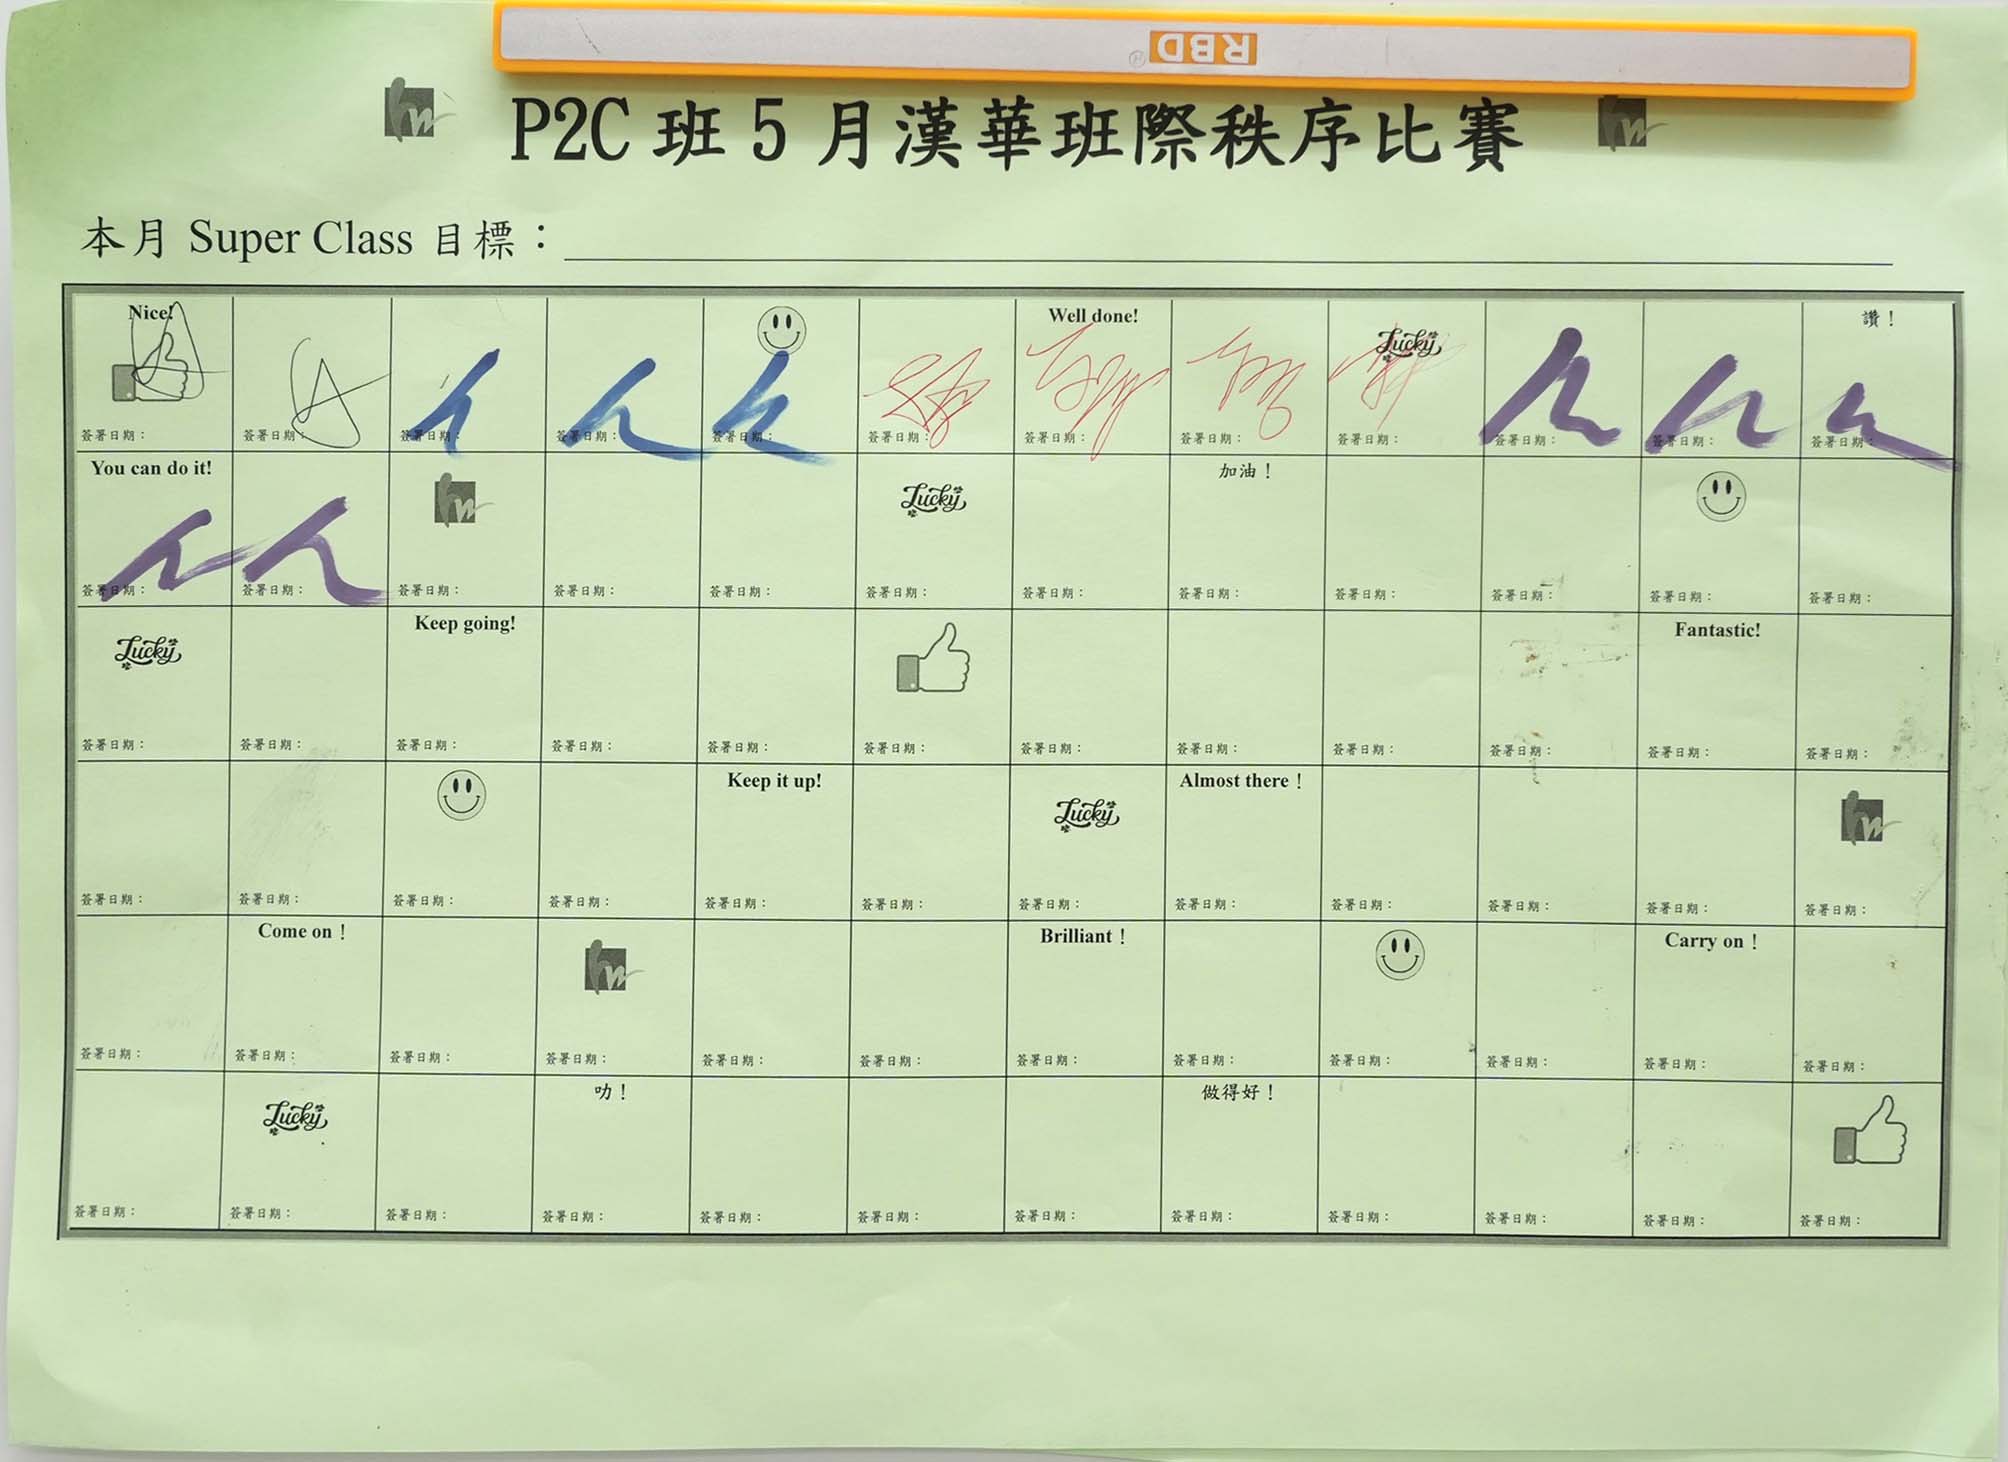 RBD
P2C 班 5 月漢華班際秩序比賽
本月 Super Class 目標：
Nice! Well done! Lucky 讚！
簽署日期： 簽署日期： 簽署日期： 簽署日期： 簽署日期： 簽署日期： 簽署日期： 簽署日期： 簽署日期： 簽署日期： 簽署日期： 簽署日期：
You can do it! hw Lucky 加油！
簽署日期： 簽署日期： 簽署日期： 簽署日期： 簽署日期： 簽署日期： 簽署日期： 簽署日期： 簽署日期： 簽署日期： 簽署日期： 簽署日期：
Lucky Keep going! Fantastic!
簽署日期： 簽署日期： 簽署日期： 簽署日期： 簽署日期： 簽署日期： 簽署日期： 簽署日期： 簽署日期： 簽署日期： 簽署日期： 簽署日期：
Keep it up! Lucky Almost there！ hw
簽署日期： 簽署日期： 簽署日期： 簽署日期： 簽署日期： 簽署日期： 簽署日期： 簽署日期： 簽署日期： 簽署日期： 簽署日期： 簽署日期：
Come on！ hw Brilliant！ Carry on！
簽署日期： 簽署日期： 簽署日期： 簽署日期： 簽署日期： 簽署日期： 簽署日期： 簽署日期： 簽署日期： 簽署日期： 簽署日期： 簽署日期：
Lucky 叻！ 做得好！
簽署日期： 簽署日期： 簽署日期： 簽署日期： 簽署日期： 簽署日期： 簽署日期： 簽署日期： 簽署日期： 簽署日期： 簽署日期： 簽署日期：